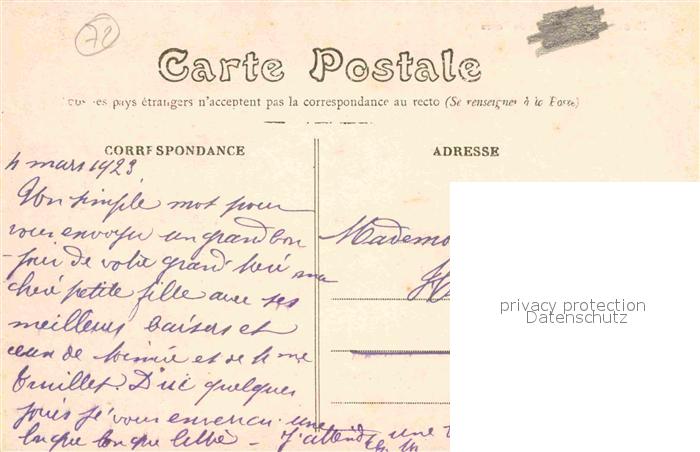 72
Carte Postale
Tous les pays étrangers n'acceptent pas la correspondance au recto (Se renseigner à la Poste)
CORRESPONDANCE
ADRESSE
4 mars 1923
Un simple mot pour
vous envoyer un grand bon
-jour de votre grand
ma
chère petite fille avec ses
meilleurs baisers et
ceux de et de Mme
D'ici quelques
jours je vous enverrai une
longue longue lettre - J'attends une
Mademo
privacy protection
Datenschutz